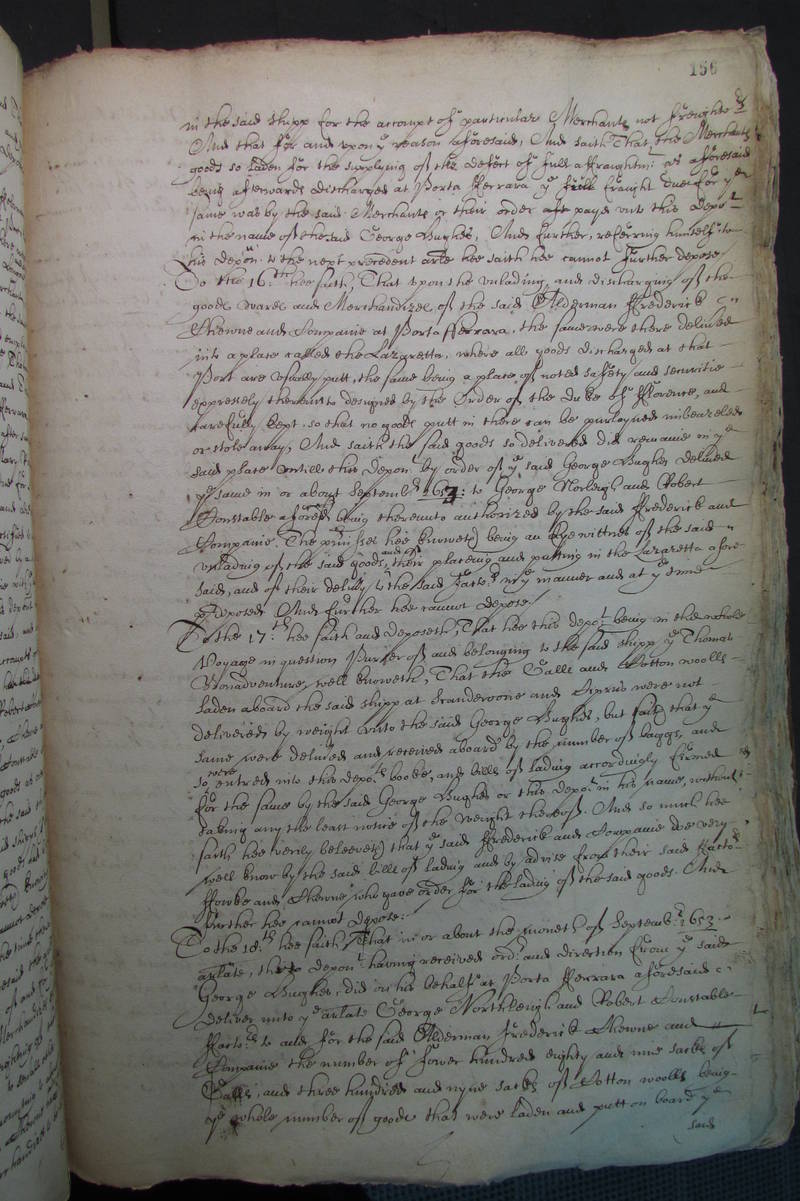 156
in the said shipp for the accompt of particular Merchants not freighters
And that for and upon ye reason aforesaid, And saith That the Merchants
goods so laden for the supplying of the defect of full affraightmt as aforesaid
being afterwards discharged at Porta fferrara ye full fraught due for ye
same was by the said Merchants or their order payd unto this depot
in the name of the said George Hughes, And further, referring himselfe to
his depon to the next precedent arle hee saith hee cannot further depose
To the 16:th hee saith, That upon the unlading and discharging of the
goods wares and Merchandizes of the said Alderman ffrederick
Thewne and Companie at Porta fferrara, the same were there delivered
into a place called the Lazaretta, where all goods discharged at that
Port are usually putt, the same being a place of noted safety and securitie
expressely thereunto designed by the Order of the Duke of fflorence, and
carefully kept so that no goods putt in there can be purloyned imbeazeled
or stole away, And saith the said goods so delivered did remaine in ye
said place untill this depont by order of ye said George Hughes delivered
ye same in or about Septembr 1653: to George Norleigh and Robert
Constable aforesd being thereunto authorized by the said ffrederick and
Companie. The premisses hee knoweth being an Eyewittnes of the said
unlading of the said goods, and of their placeing and putting in the Lazaretta afore
said, and of their delivery to the said factors in ye manner and at ye time
predeposed And further hee cannot depose/
To the 17:th hee saith and deposeth, That hee this depot being in the whole
Voyage in question Purser of and belonging to the said shipp ye Thomas
Bonadventure, well knoweth, That the Galls and Cotton woolls
laden aboard the said shipp at Scanderoone and Cyprus were not
delivered by weight unto the said George Hughes, but saith that ye
same were delivered and received aboard by the number of baggs, and
so were entred into this depots booke, and bills of lading accordingly firmed
for the same by the said George Hughes or this depot in his name, without
taking any the least notice of the weight thereof. And so much hee
saith hee verily beleeveth that ye said ffrederick and Companie doe very
well know by the said bills of lading and by advise from their said factors
ffowke and Thewne who gave order for the lading of the said goods. And
further hee cannot depose:
To the 18:th hee saith, That in or about the moneth of Septembr 1653
arlate, this depont having received ordr and direction from ye said
George Hughes, did on his behalf at Porta fferrara aforesaid
deliver unto ye arlate George Northleigh and Robert Constable
ffactors to and for the said Alderman ffrederick Thewne and
Companie the number of fower hundred eighty and nine sacks of
Galls, and three hundred and nyne sacks of Cotton woolls being
ye whole number of goods that were laden and putt on board ye
said